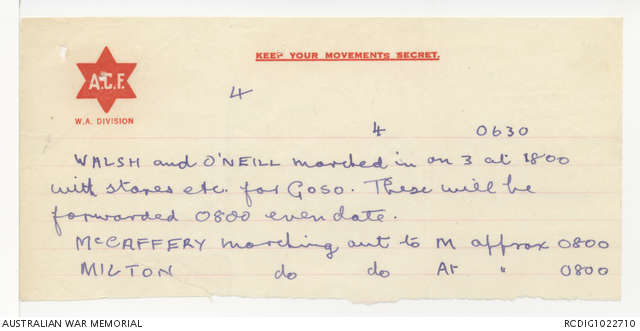 KEEP YOUR MOVEMENTS SECRET.
A.C.F.
W.A. DIVISION
4
4 0630
WALSH and O'NEILL marched in on 3 at 1800
with stores etc. for GOSO. These will be
forwarded 0800 even date.
McCAFFERY marching out to M approx 0800
MILTON do do At " 0800
AUSTRALIAN WAR MEMORIAL
RCDIG1022710